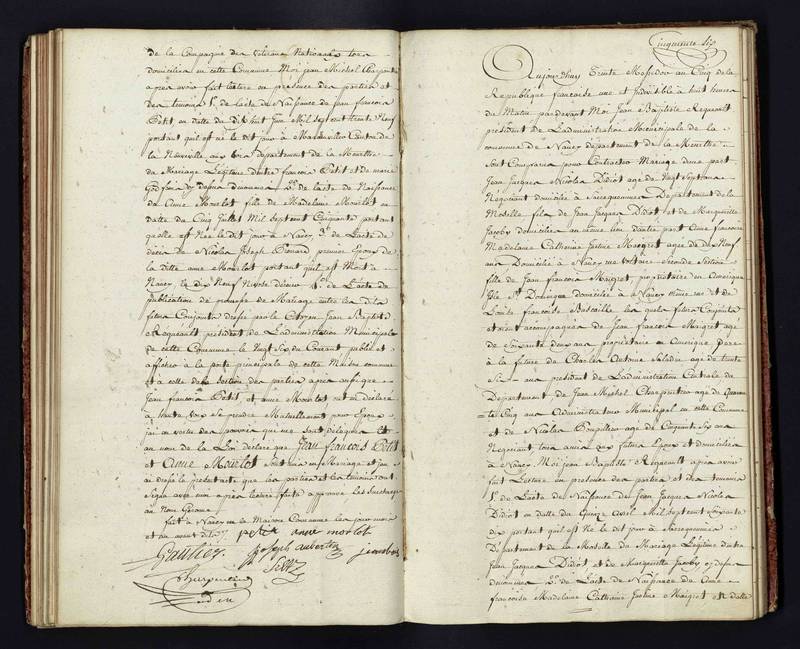 de la Compagnie des veterans Nationaux tous
domiciliés en cette Commune Moi jean Michel Charpentier
apres avoir fait lecture en presence des parties et
des temoins 1º de lacte de Naissance de jean francois
Petit en datte du Dix huit juin Mil sept cent trente Neuf
portant quil est né le dit jour à Canton de
la Neuveville aux bois departement de la Meurthe
du Mariage Légitime dentre francois Petit et de marie
denommés 2º de lacte de Naissance
de Anne Mourlot fille de Madelaine Mourlot en
datte du Cinq juillet Mil Septcent Cinquante portant
quelle est Née le dit jour à Nancy 3º de Lacte de
décès de Nicolas Joseph premier Epoux de
la ditte anne Mourlot portant quil est Mort à
Nancy le dix Neuf Nivose dernier 4º de Lacte de
publication de promesse de Mariage entre les dits
futurs Conjoints dressé par le Citoyen Jean Baptiste
Requeault president de Ladministration Municipale
de cette Commune le Vingt Six du Courant publié et
affiché à la porte principale de cette Maison commune
et à celle des Sections des parties apres aussique
jean francois Petit, et, anne Mourlot ont eu declaré
à haute voix se prendre Mutuellement pour Epoux
j'ai en vertu des pouvoirs qui me sont délégués et
au nom de la Loi declaré que Jean francois Petit
et Anne Mourlot sont unis en Mariage et j'en
ai dressé le present acte que les parties et les temoins ont
Signé avec moi apres lecture faite approuvé les Surcharges
au Nom
fait à Nancy en la Maison Commune les jour mois
et an avant dits petit anne morlot
Gautier. Joseph aubertin
Charpentier
Cinquante Six
Aujourdhuy Trente Messidor an Cinq de la
Republique francoise une et Indivisible à huit heures
du Matin pardevant Moi Jean Baptiste Requeault
president de Ladministration Municipale de la
commune de Nancy departement de la Meurthe
Sont Comparus pour Contracter Mariage dune part
Jean Jacques Nicolas Didiot agé de Vingt Sept ans
Négociant domicilié à Sarreguemines Departement de la
Moselle fils de Jean Jacques Didiot et de Margueritte
Jacoby domiciliés au même lieu dautre part Anne francoise
Madelaine Catherine Justine Maigret agée de dix Neuf
ans Domiciliée à Nancy rue voltaire Seconde Section
fille de Jean francois Maigret, propriétaire en amerique
Isle St Domingue domicilié à Nancy même rue et de
Louise francoise les quels futurs Conjoints
etoient accompagnés de Jean francois Maigret agé
de Soixante deux ans propriétaire en Amerique pere
à la future de Charles Antoine Saladin agé de trente
Six ans president de Ladministration Centrale du
Departement de Jean Michel Charpentier agé de Quaran
te Cinq ans Administrateur Municipal en cette Commune
et de Nicolas agé de Cinquante Six ans
Negociant tous amis aux futurs Epoux et domiciliés
à Nancy Moi jean Baptiste Requeault apres avoir
fait Lecture en presence des parties et des temoins
1º de Lacte de Naissance de Jean Jacques Nicolas
Didiot en datte du Quinze avril Mil Sept cent Soixante
dix portant quil est Né le dit jour à Sarreguemines
Departement de la Moselle du Mariage Légitime dentre
Jean Jacques Didiot et de Margueritte Jacoby cydessus
denommés 2º de Lacte de Naissance de Anne
francoise Madelaine Catherine Justine Maigret en datte